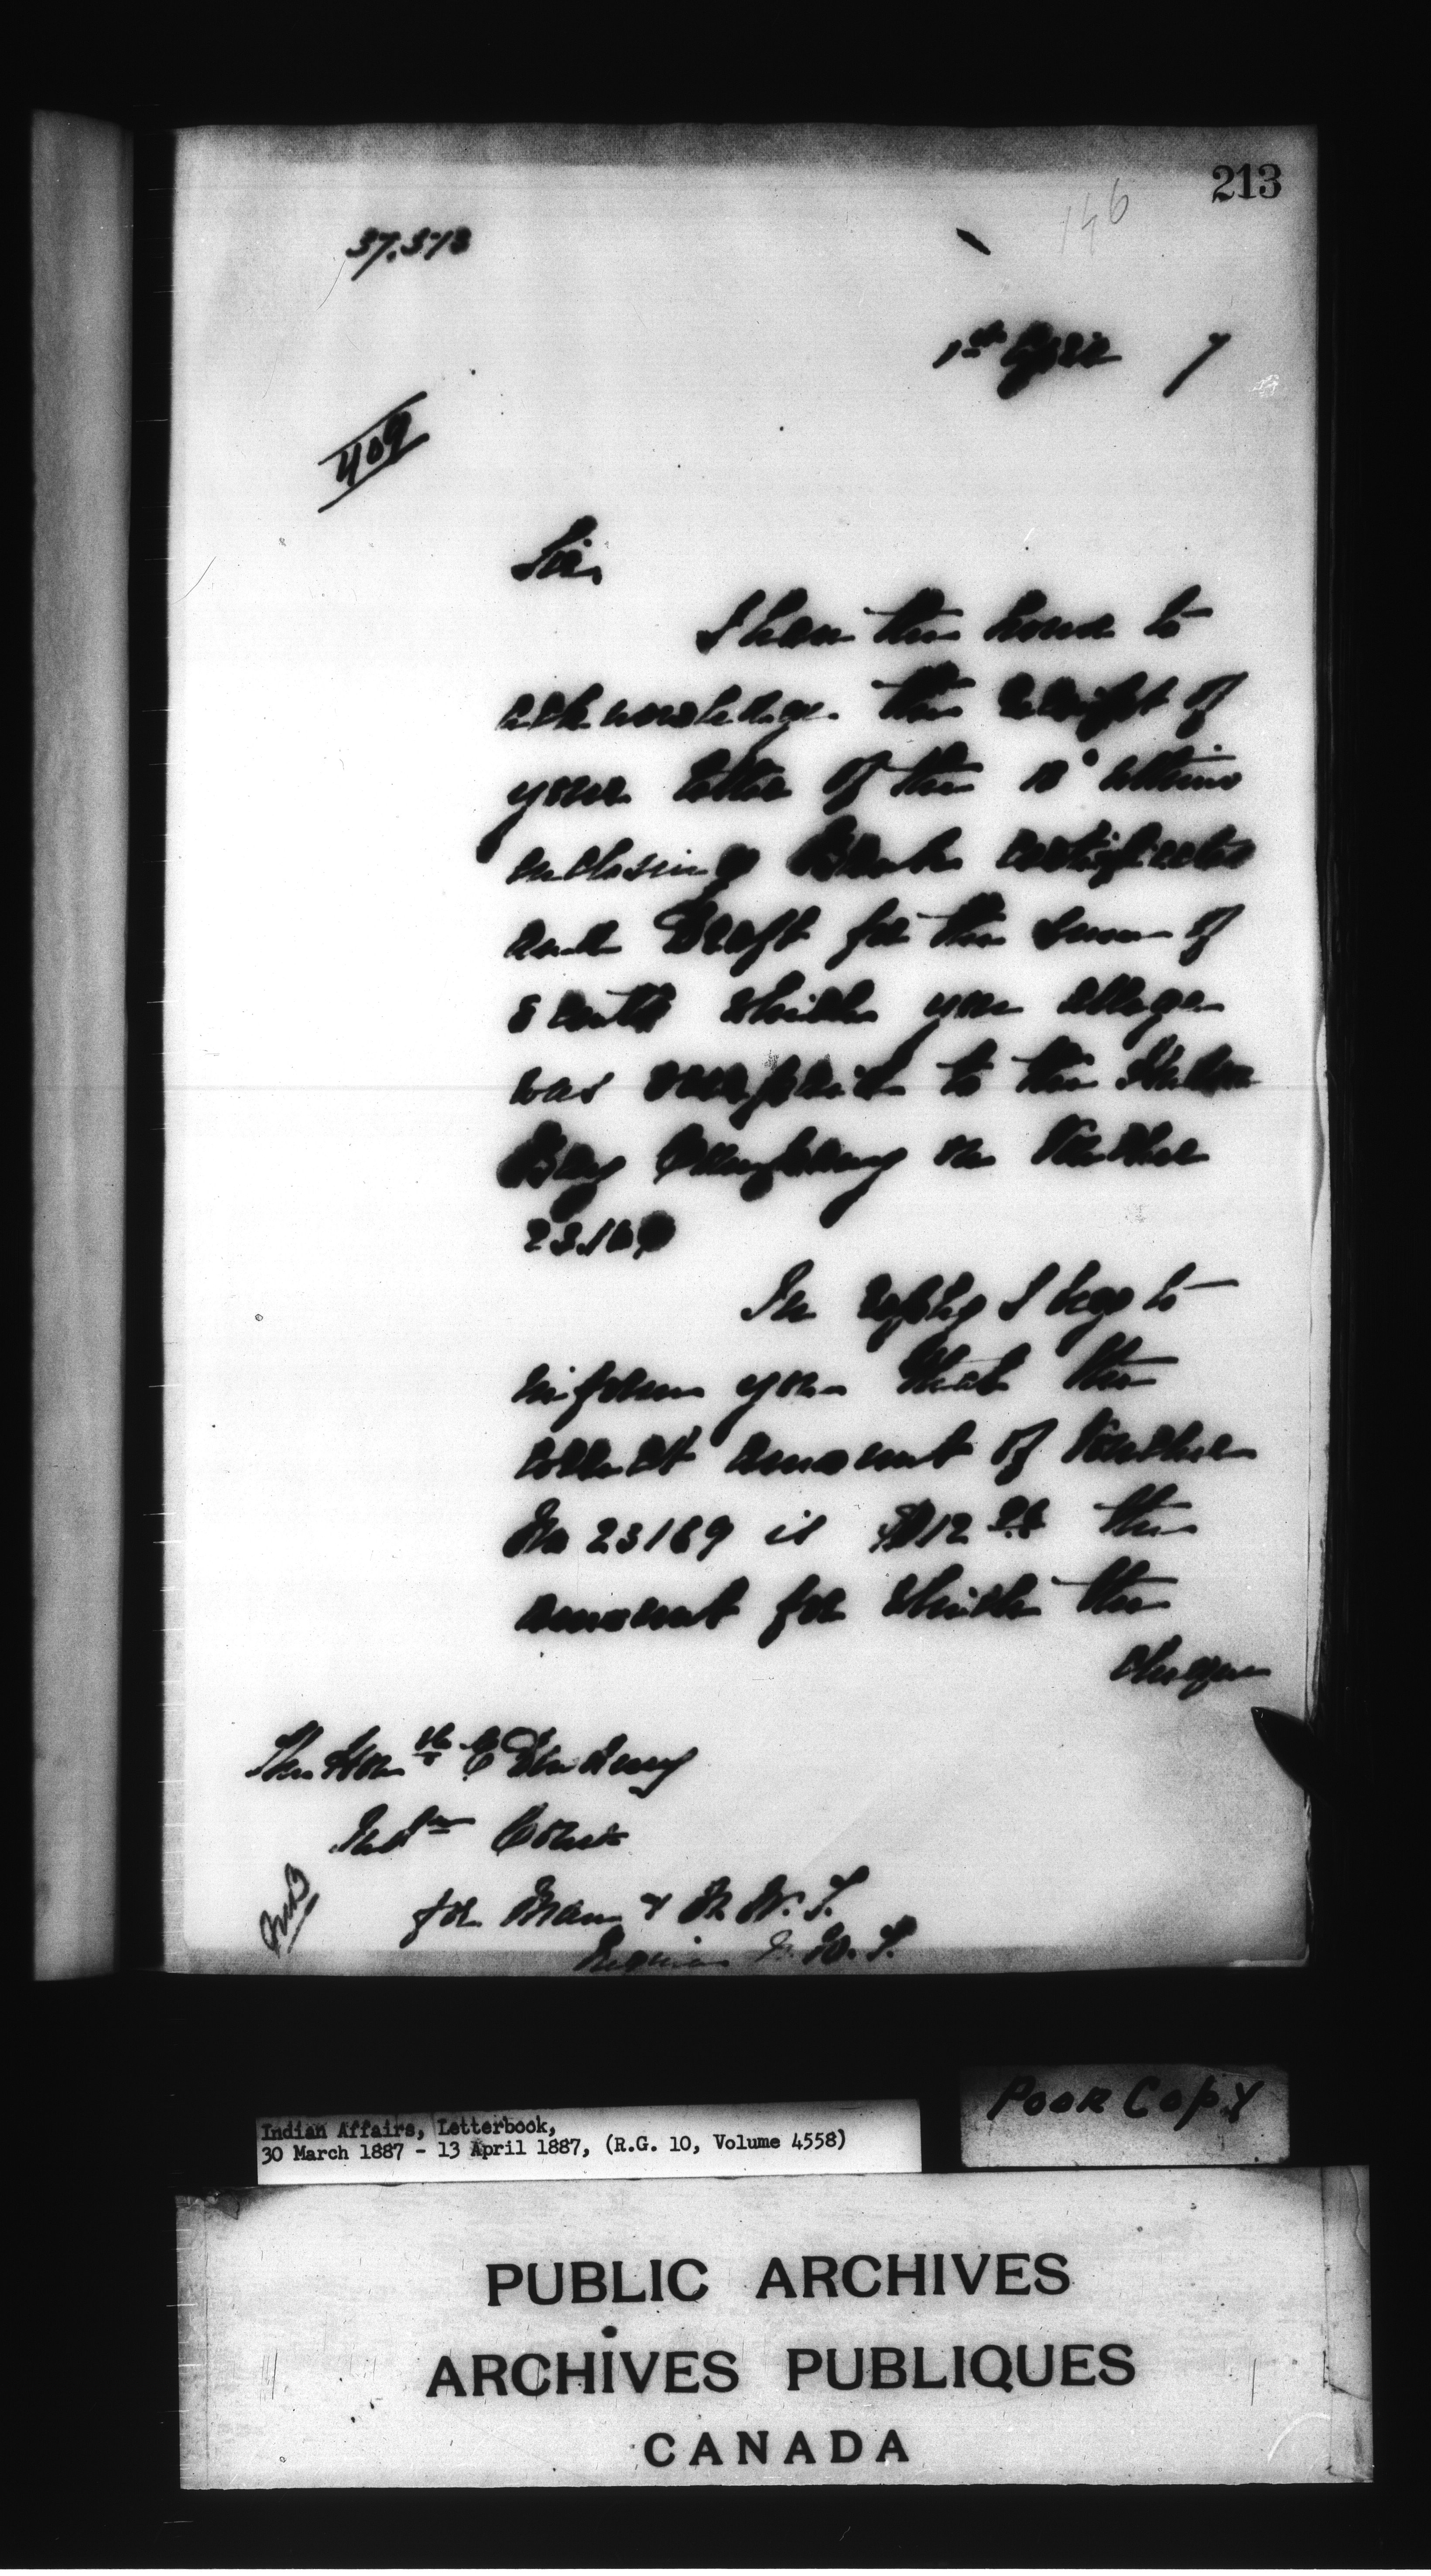 213
146
37.373
1st April 7
409
Sir,
I have the honor to
acknowledge the receipt of
your letter of the 18° ultimo
enclosing Bank certificate
and Draft for the sum of
8 cents which you allege
was overpaid to the Hudson
Bay Company on Voucher
23169
In reply I beg to
inform you that the
correct amount of Voucher
No 23169 is $12 26 the
amount for which the
cheque
The Honble E Dewdney
Indn Comr
for Man & N. W. T.
Regina N. W. T.
POOR COPY
Indian Affairs, Letterbook,
30 March 1887 - 13 April 1887, (R.G. 10, Volume 4558)
PUBLIC ARCHIVES
ARCHIVES PUBLIQUES
CANADA